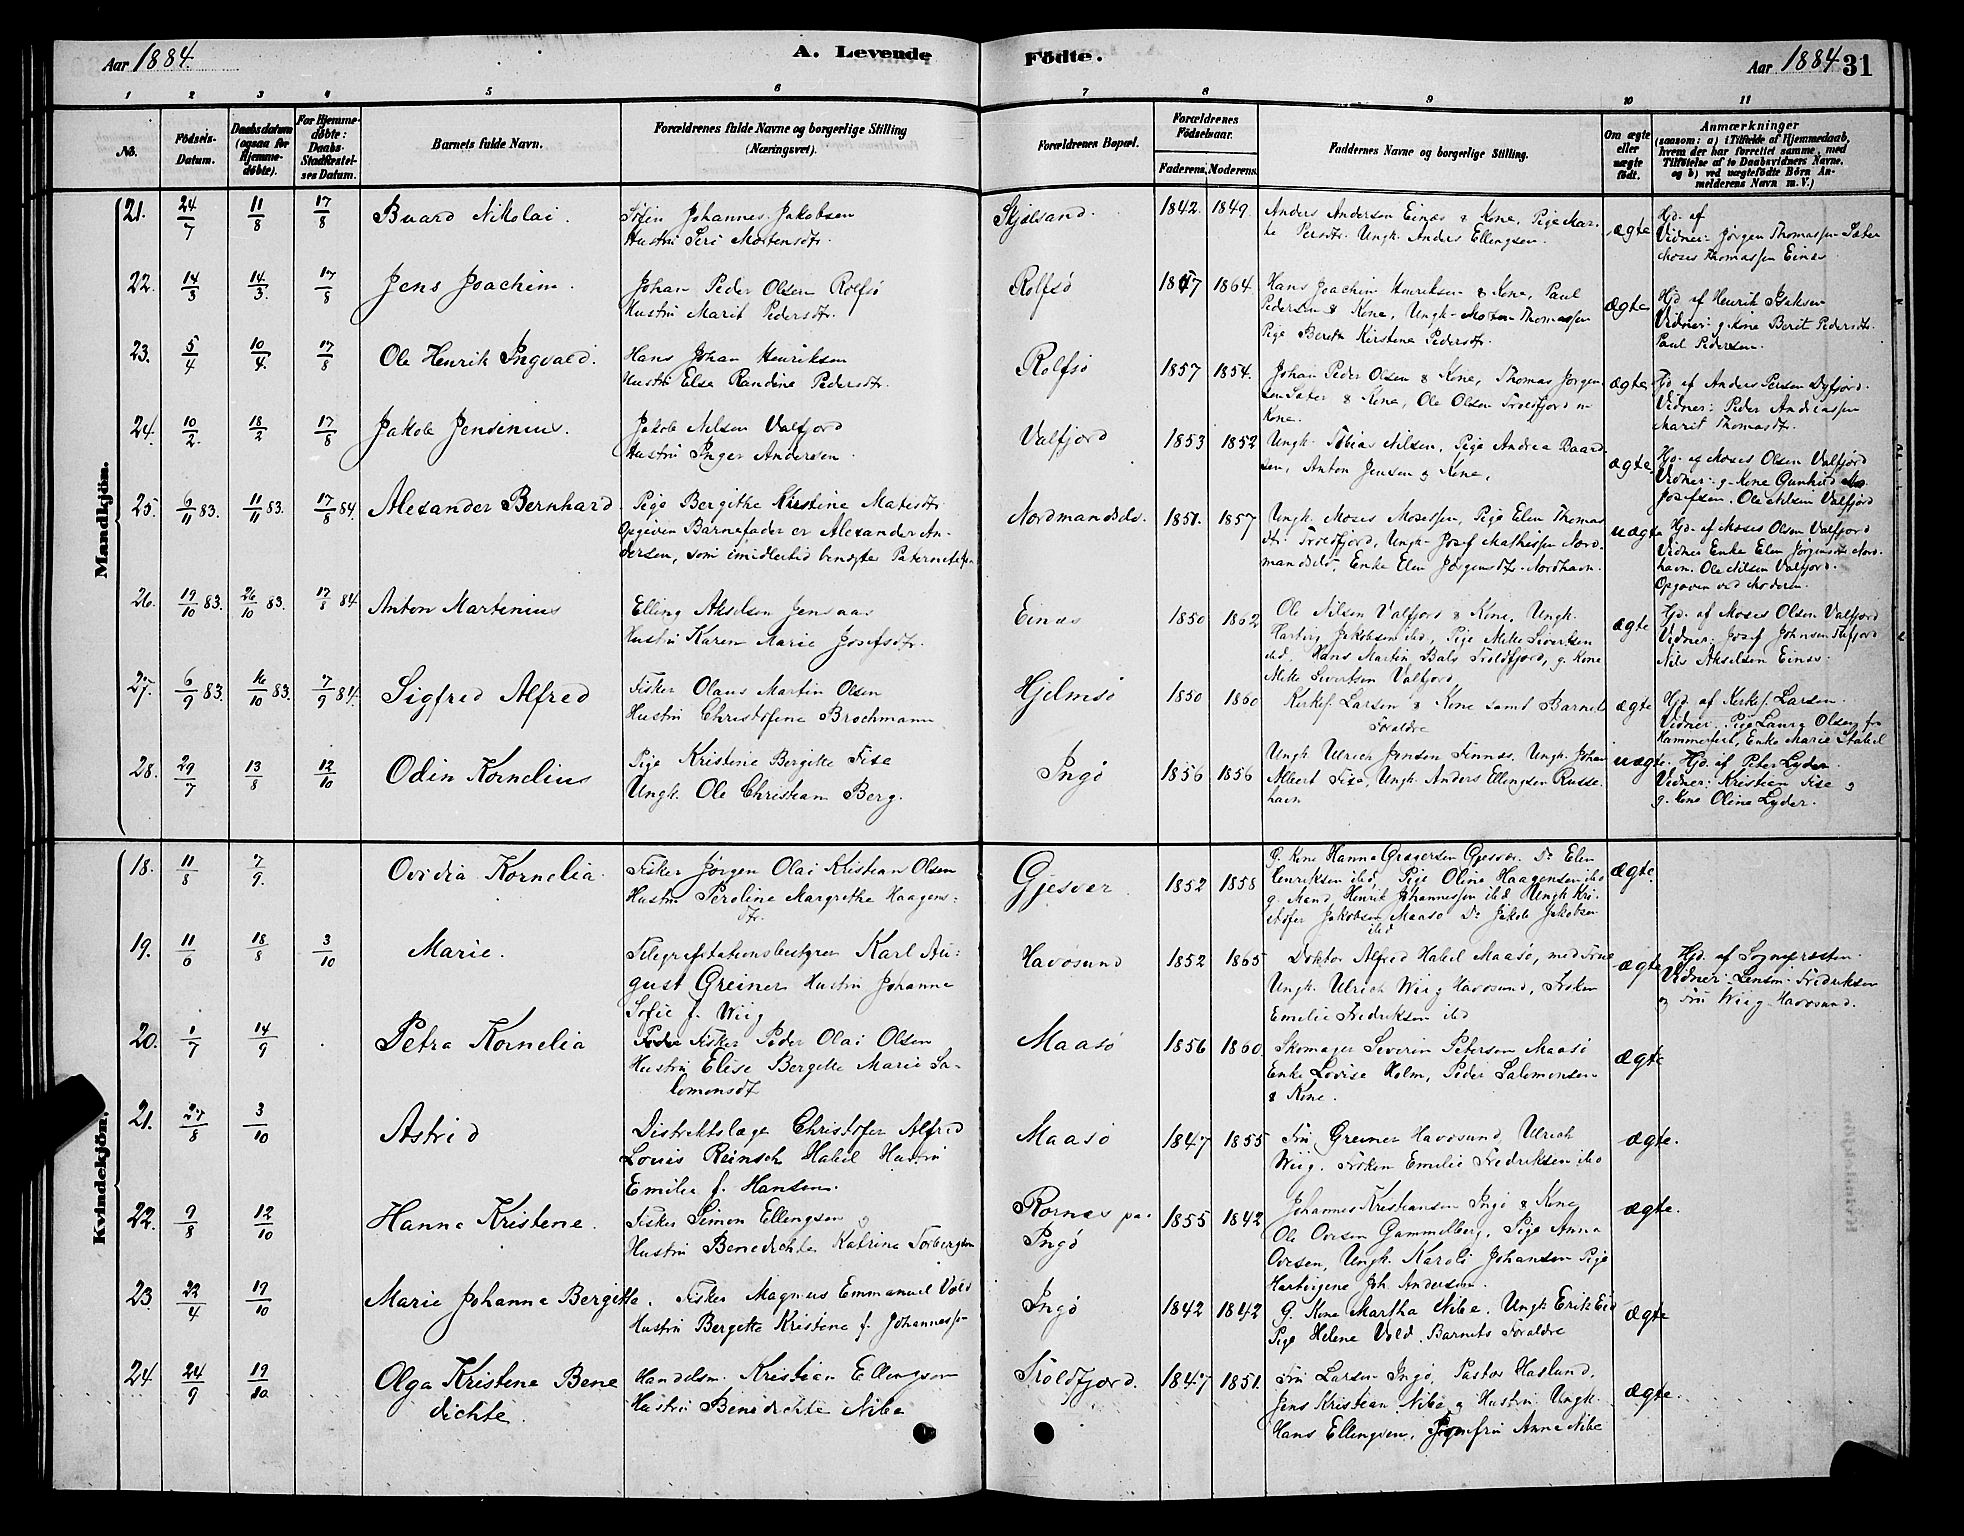 Aar 1884.
A. Levende
Födte.
Aar 1884
31
1 2 3 4 5 6 7 8 9 10 11
No.
Födsels-
Datum.
Daabsdatum
(ogsaa for
Hjemme-
döbte).
For Hjemme-
döbte:
Daabs-
Stadfæstel-
ses Datum.
Barnets fulde Navn.
Forældrenes fulde Navne og borgerlige Stilling
(Næringsvei).
Forældrenes Bopæl.
Forældrenes
Födselsaar.
Faderens. Moderens.
Faddernes Navne og borgerlige Stilling.
Om ægte
eller
uægte
födt.
Anmærkninger
(saasom: a) i Tilfælde af Hjemmedaab,
hvem der har forrettet samme, med
Tilföielse af to Daabsvidners Navne,
og b) ved uægtefödte Börn An-
melderens Navn m. V.)
Mandkjön.
21. 24/7 11/8 17/8 Baard Nikolai.
Johannes Jakobsen
Hustru Siri Mortensdtr.
Skjælsand. 1842. 1849.
Anders Andersen Einæs & Kone, Pige Mar-
te Persdtr. Ungk. Anders Ellingsen.
ægte
Hjd. af
Vidner: Jørgen Thomassen Sæter
Moses Thomassen Einæs
22. 14/3 14/3. 17/8 Jens Joachim.
Johan Peder Olsen Rolfsø
Hustru Marit Pedersdtr.
Rolfsø 1847 1864
Hans Joachim Henriksen & Kone, Paul
Pedersen & Kone, Ungk. Morten Thomassen
Pige Berith Kirstine Pedersdtr.
ægte
Hjd af Henrik Isaksen
Vidner: g. Kone Berit Pedersdtr.
Paul Pedersen.
23. 5/4 10/4. 17/8 Ole Henrik Ingvald.
Hans Johan Henriksen
Hustru Elsa Randine Pedersdtr.
Rolfsø 1857 1854.
Johan Peder Olsen & Kone, Thomas Jørgen
sen Sæter & Kone, Ole Olsen Troldfjord m
Kone.
ægte
Hjd af Anders Persen Dyfjord.
Vidner: Peder Andreassen
Marit Thomasdtr.
24. 10/2. 18/2 17/8 Jakob Jensenius.
Jakob Nilsen Valfjord
Hustru Inger Andersen
Valfjord 1853 1852
Ungk. Tobias Nilsen, Pige Andrea Baard
sen, Anton Jensen & Kone.
ægte
Hjd. af Moses Olsen Valfjord
Vidner: g. Kone Gunhild
Josefsen. Ole Nilsen Valfjord
25. 6/11 83. 11/11 83. 17/8 84. Alexander Bernhard
Pige Bergithe Kirstine Matisdtr
Opgiven Barnefader er Alexander An-
dersen, som imidlertid benægter Paterniteten
Nordmandsds. 1851. 1857
Ungk. Moses Mosessen, Pige Elen Thomas
dtr. Troldfjord, Ungk. Josef Mathissen Nord-
mandsds, Enke Elen Jørgensdtr. Nordhavn.
uægte
Hjd. af Moses Olsen Valfjord
Vidner Enke Elen Jørgensdtr Nord-
havn. Ole Nilsen Valfjord.
Opgaven ved Moderen.
26. 19/10 83. 26/10 83. 17/8 84 Anton Martenius
Elling Akselsen
Hustru Karen Marie Josefsdtr.
Einæs 1850 1862
Ole Nilsen Valfjord & Kone, Ungk.
Hartvig Jakobsen ibd, Pige Mette Sivertsen
ibd, Hans Martin Bals Troldfjord, g. Kone
Mette Sivertsen Valfjord
ægte
Hjd. af Moses Olsen Valfjord
Vidner: Josef Johnsen
Nils Akselsen Einæs.
27. 6/9 83. 16/10 83. 7/9 84. Sigfred Alfred
Fisker Olaus Martin Olsen
Hustru Christofine Brochmann
Hjelmsø 1850 1860
Kirkes. Larsen & Kone samt Barnets
Forældre
ægte
Hjd. af Kirkes. Larsen.
Vidner: Pige Laura Olsen fra
Hammerfest, Enke Marie Stabel
28. 29/7 13/8 12/10 Odin Kornelius
Pige Kristine Bergitte Fise
Ungk. Ole Christian Berg.
Ingø 1856 1856
Ungk Ulrich Jensen Finnes, Ungk. Johan
Albert Fise, Ungk. Anders Ellingsen Russe-
havn
uægte.
Hjd. af Peter Lyder
Vidner: Kristian Fise &
g. Kone Oline Lyder.
Kvindekjön.
18. 11/8 7/9. Ovidia Kornelia.
Fisker Jørgen Olai Kristian Olsen
Hustru Peroline Margrethe Haagens-
dtr.
Gjesvær. 1852 1858
G. Kone Hanna Gregersen Gjesvær. Do Elen
Henriksen ibd, Pige Oline Haagensen ibd
g. Mand Henrik Johannessen ibd Ungk Kri-
stofer Jakobsen Maasø Do Jakob Jakobsen
ibd
ægte.
19. 11/6 18/8 3/10 Marie.
Telegrafstationsbestyrer Karl Au-
gust Greiner Hustru Johanne
Sofie f. Wiig
Havøsund 1852 1865
Doktor Alfred Habel Maasø, med Frue
Ungk. Ulrich Wiig Havøsund, Frøken
Emelie Fredriksen ibd
ægte
Hjd. af Sognepræsten.
Vidner: Lensm. Fredriksen
og Fru Wiig Havøsund.
20. 1/7 14/9 Petra Kornelia
Fisker Peder Olai Olsen
Hustru Elise Bergitte Marie Sa-
lomonsdt
Maasø 1856 1860.
Skomager Severin Petersen Maasø
Enke Lovise Holm, Peder Salomonsen
& Kone.
ægte
21. 27/8 3/10 Astrid
Distriktslæge Christofer Alfred
Louis Reinsch Habel Hustru
Emilie f. Hansen.
Maasø 1847 1855
Fru Greiner Havøsund, Ulrich
Wiig. Frøken Emelie Fredriksen ibd
ægte.
22. 9/8 12/10 Hanna Kristene.
Fisker Simon Ellingsen
Hustru Benedichte Katrine Torbergsen
Rornæs paa
Ingø
1855 1842
Johannes Kristiansen Ingø & Kone
Ole Ovesen Gammelberg, Pige Anna
Ovesen, Ungk. Karoli Johansen Pige
Hartvigene Joh. Andersen.
ægte.
23. 22/4 19/10 Marie Johanna Bergitte.
Fisker Magnus Emmanuel Vold
Hustru Bergette Kristene f. Johanness.
Ingø 1842 1842
G. Kone Martha Nibe. Ungk Erik Eid
Pige Helene Vold. Barnets Forældre
ægte
24 24/9 19/10 Olga Kristene Bene
dichte.
Handelsm. Kristian Ellingsen
Hustru Benedichte Nibe
Troldfjord. 1847 1851.
Fru Larsen Ingø, Pastor Haslund,
Jens Kristian Nibe & Hustru Ungk.
Hans Ellingsen, Jomfru Anna Nibe
ægte.